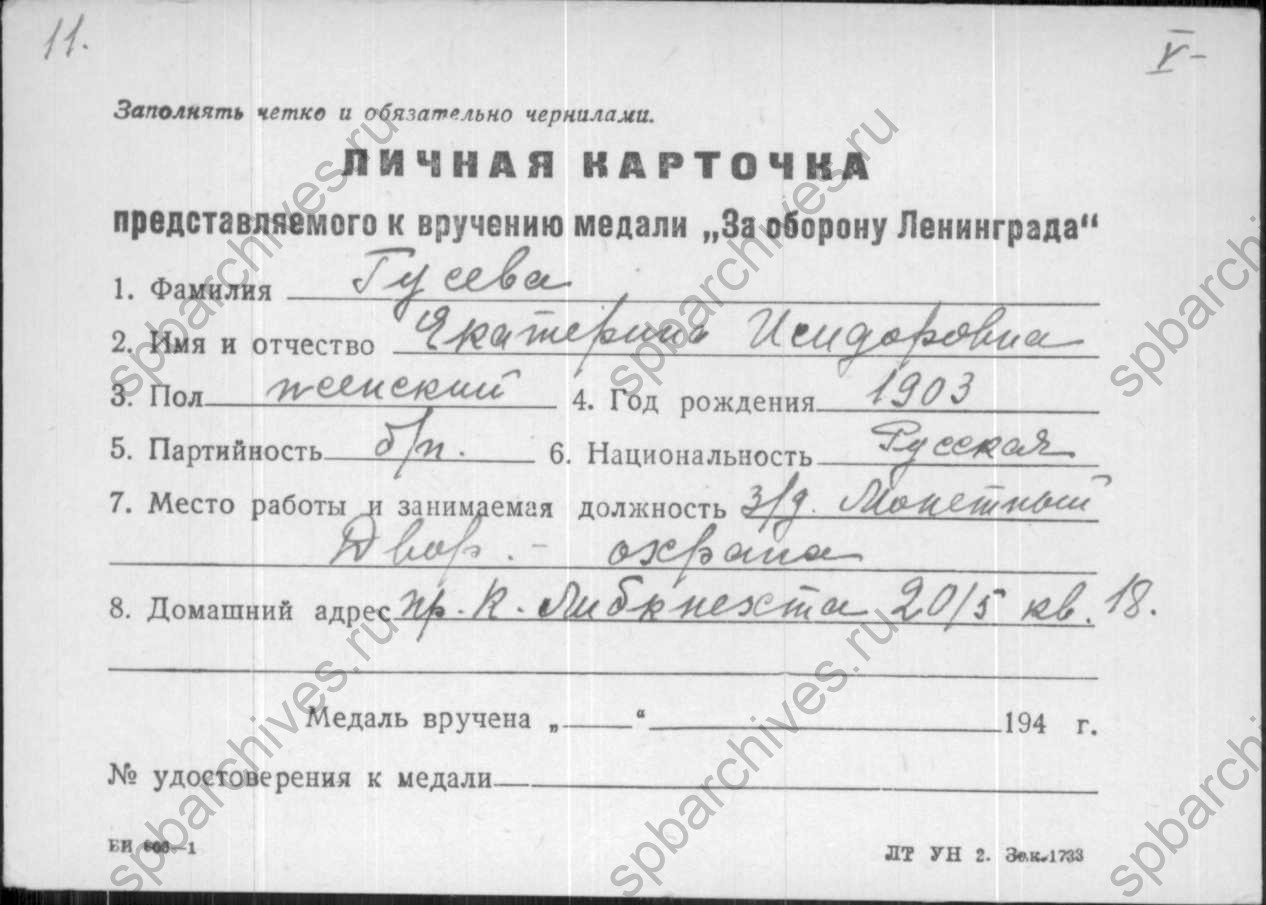 11.
V-
Заполнять четко и обязательно чернилами.
ЛИЧНАЯ КАРТОЧКА
представляемого к вручению медали „За оборону Ленинграда“
1. Фамилия Гусева
2. Имя и отчество Екатерина Исидоровна
3. Пол женский 4. Год рождения 1903
5. Партийность б/п. 6. Национальность Русская
7. Место работы и занимаемая должность з/д. Монетный
Двор. - охрана
8. Домашний адрес пр. К. Либкнехта 20/5 кв. 18.
Медаль вручена „ “ 194 г.
№ удостоверения к медали
БИ —1
ЛТ УН 2. Зак.1733
spbarchives.ru
spbarchives.ru
spbarchives.ru
spbarchives.ru
spbarchi
spbarchi